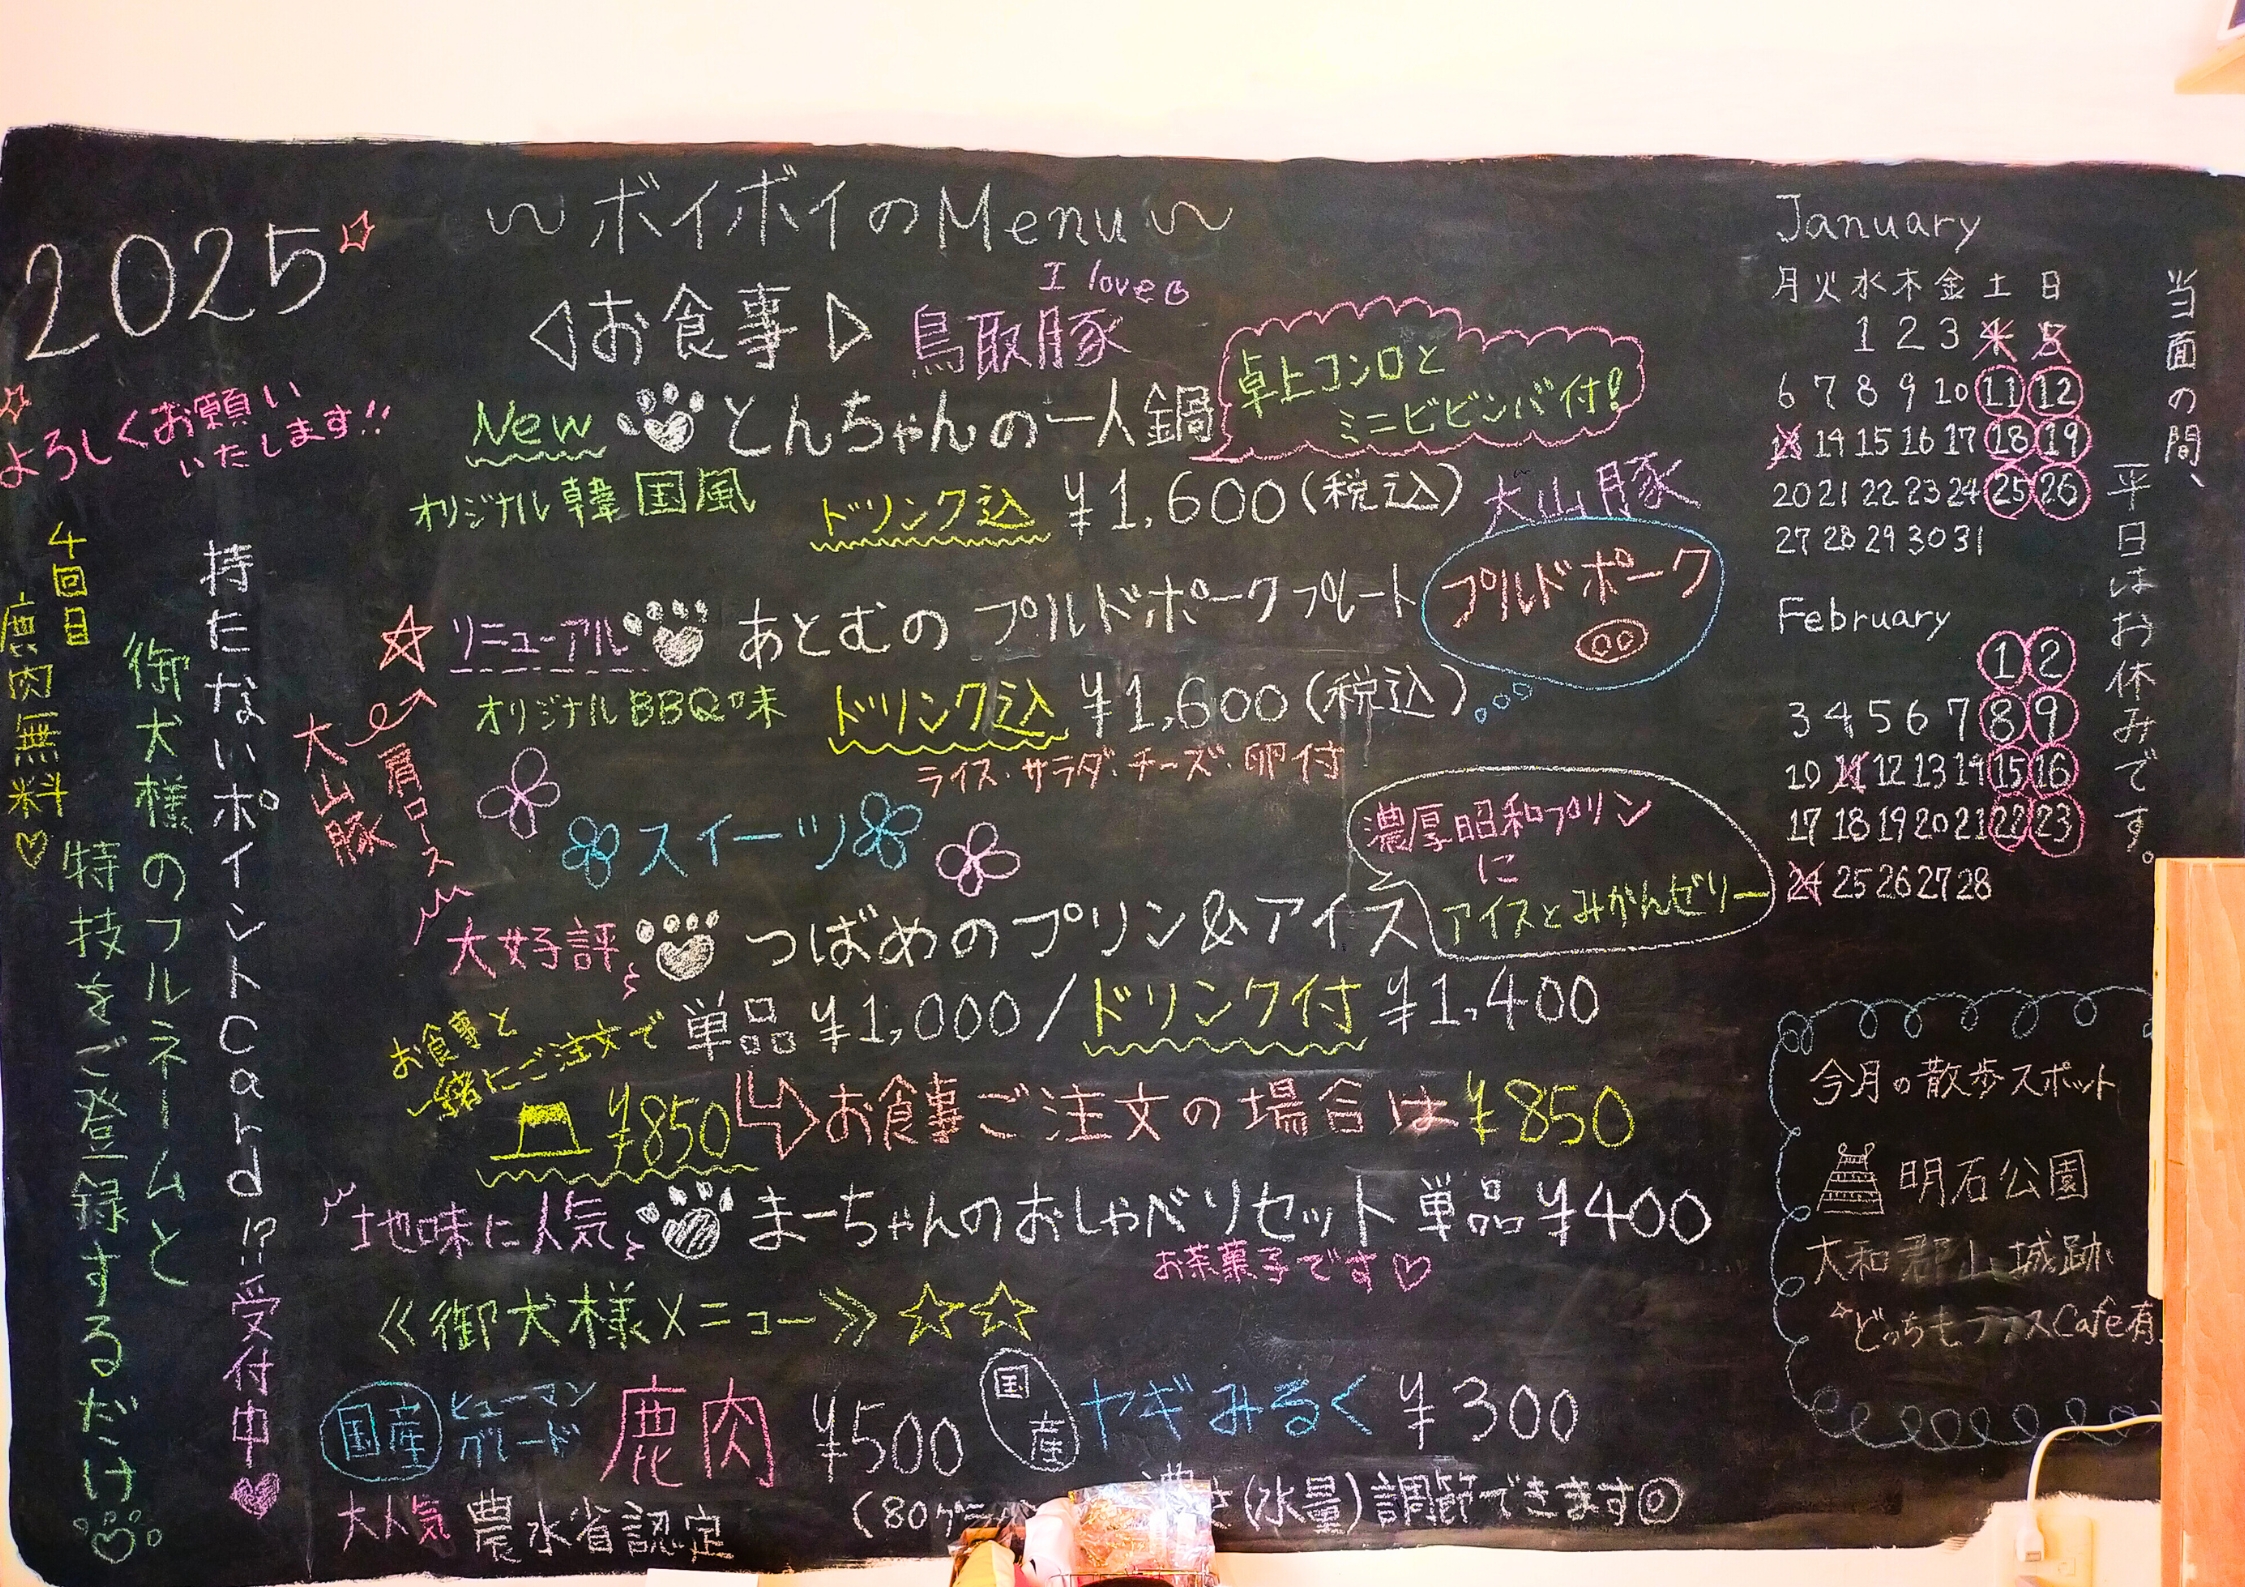 2025
よろしくお願い
いたします!!
持たないポイントCard!? 受付中
御犬様のフルネームと
特技をご登録するだけ
4回目
鹿肉無料
〜ボイボイのMenu〜
◁お食事▷
I love
鳥取豚
New とんちゃんの一人鍋
卓上コンロと
ミニビビンバ付!
オリジナル韓国風 ドリンク込 ¥1,600(税込)
大山豚
プルドポーク
リニューアル あとむの プルドポークプレート
オリジナルBBQ味 ドリンク込 ¥1,600(税込)
ライス・サラダ・チーズ・卵付
大山豚
肩ロース
スイーツ
濃厚昭和プリン
に
アイスとみかんゼリー
大好評 つばめのプリン&アイス
単品 ¥1,000/ドリンク付 ¥1,400
お食事と
一緒にご注文で
¥850
お食事ご注文の場合は¥850
地味に人気 まーちゃんのおしゃべりセット 単品 ¥400
お茶菓子です
≪御犬様メニュー≫☆☆
国産 ヒューマン
グレード
鹿肉 ¥500
国産 ヤギみるく ¥300
大人気 農水省認定
(80グラ
さ(水量)調節できます
January
月火水木金土日
1 2 3 4 5
6 7 8 9 10 11 12
13 14 15 16 17 18 19
20 21 22 23 24 25 26
27 28 29 30 31
February
1 2
3 4 5 6 7 8 9
10 11 12 13 14 15 16
17 18 19 20 21 22 23
24 25 26 27 28
当面の間、
平日はお休みです。
今月の散歩スポット
明石公園
大和郡山城跡
どっちも Cafe有